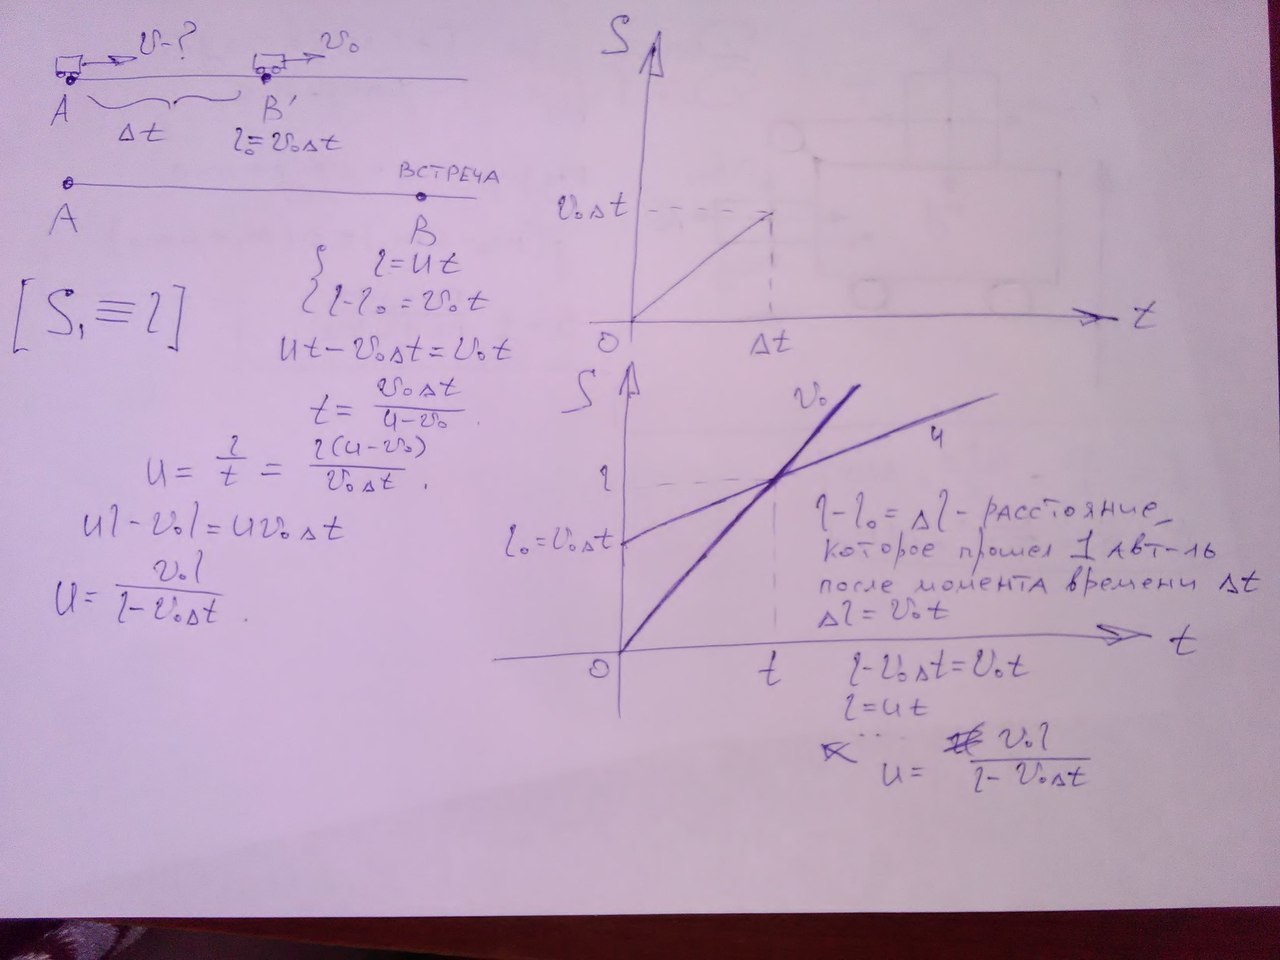 v-?
v₀
A
B'
Δt
l₀=v₀Δt
ВСТРЕЧА
A
B
[S₁≡l]
{ l=ut
l-l₀=v₀t
ut-v₀Δt=v₀t
t= v₀Δt/(u-v₀).
u= l/t = l(u-v₀)/(v₀Δt).
ul-v₀l=uv₀Δt
u= v₀l/(l-v₀Δt).
S
v₀Δt
0
Δt
t
S
v₀
u
l
l₀=v₀Δt
0
t
t
l-l₀=Δl-расстояние,
которое прошел 1 авт-ль
после момента времени Δt
Δl=v₀t
l-v₀Δt=v₀t
l=ut
...
u= v₀l/(l-v₀Δt)